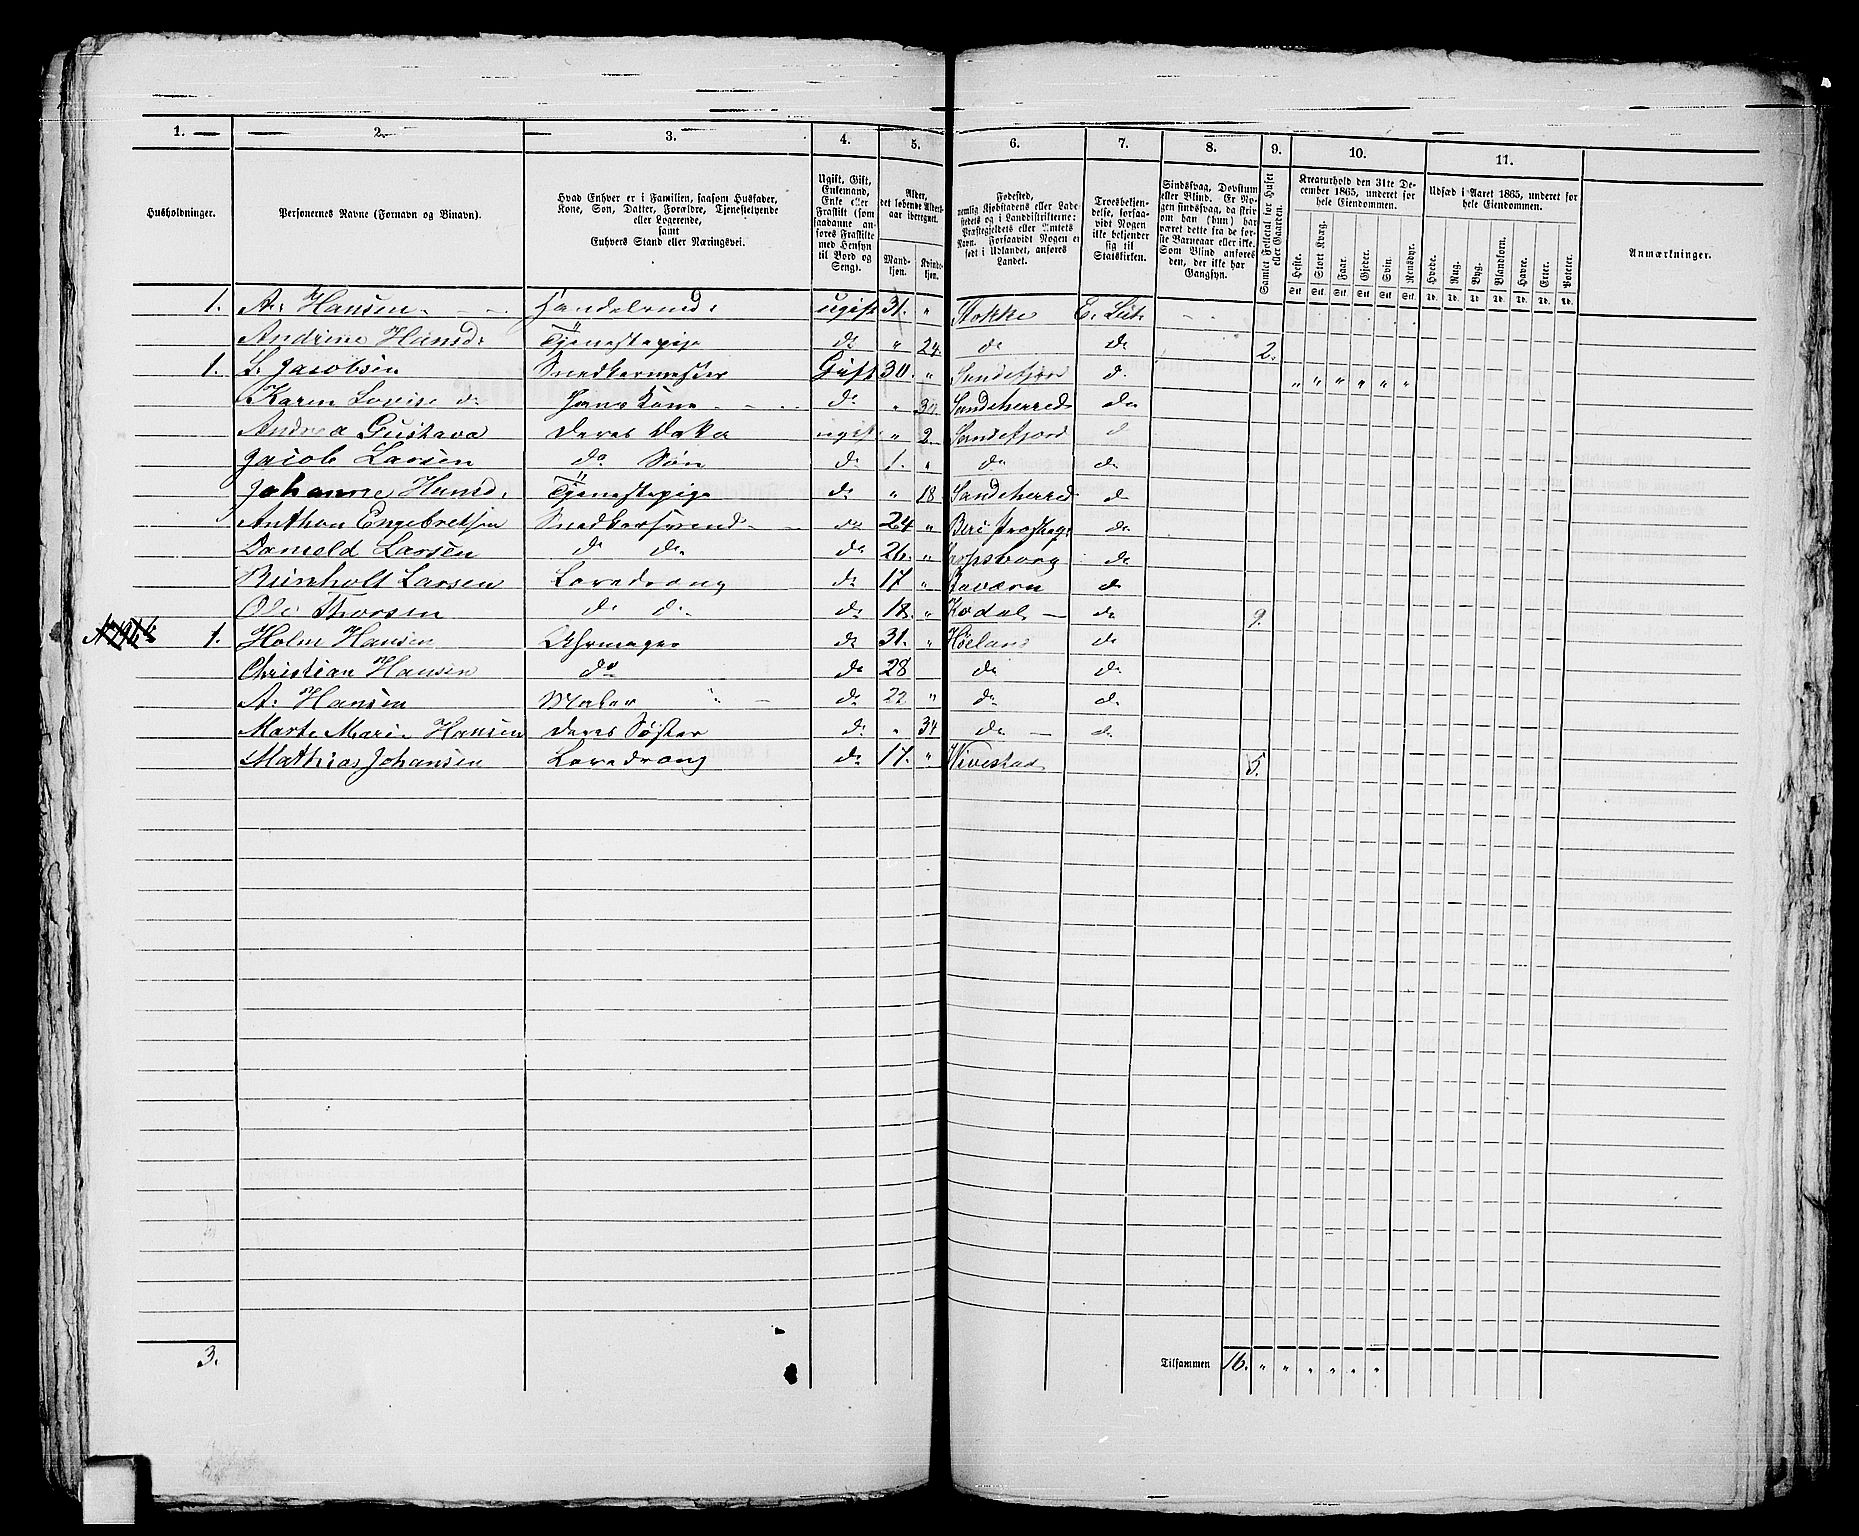 1. 2. 3. 4. 5. 6. 7. 8. 9. 10. 11.
Husholdninger.
Personernes Navne (Fornavn og Binavn).
Hvad Enhver er i Familien, saasom Husfader,
Kone, Søn, Datter, Forældre, Tjenestetyende
eller Logerende,
samt
Enhvers Stand eller Næringsvei.
Ugift, Gift,
Enkemand,
Enke eller
Fraskilt (som
saadanne an-
føres Fraskilte
med Hensyn
til Bord og
Seng).
Alder,
det løbende Alders-
aar iberegnet.
Mand-
kjøn.
Kvinde-
kjøn.
Fødested,
nemlig Kjøbstadens eller Lade-
stedets og i Landdistrikterne:
Præstegjeldets eller Amtets
Navn. Forsaavidt Nogen er
født i Udlandet, anføres
Landet.
Troesbekjen-
delse, forsaa-
vidt Nogen
ikke bekjender
sig til
Statskirken.
Sindssvag, Døvstum
eller Blind. Er No-
gen sindssvag, da skriv
om han (hun) har
været dette fra de før-
ste Barneaar eller ikke.
Som Blind anføres
den, der ikke har
Gangsyn.
Samlet Folketal for Huset
eller Gaarden.
Kreaturhold den 31te De-
cember 1865, underet for
hele Eiendommen.
Heste. Stort Kvæg. Faar. Gjeder. Svin. Rensdyr.
Stk. Stk. Stk. Stk. Stk. Stk.
Udsæd i Aaret 1865, underet for
hele Eiendommen.
Hvede. Rug. Byg. Blandkorn. Havre. Erter. Poteter.
Td. Td. Td. Td. Td. Td. Td.
Anmærkninger.
1. A. Hansen Handelsmd. ugift 31. " Stokke E. Luth
Andrine Hansd. Tjenestepige do " 24. do do 2.
1. L. Jacobsen Snedkermester Gift 30. " Sandefjord d. " " " " " "
Karen Lovise do Hans Kone do " 30. Sandeherred do
Andrea Gustava Deres Dater ugift " 2 Sandefjord d
Jacob Larsen do Søn do 1. " do do
Johanne Hansd. Tjenestepige do " 18 Sandeherred d
Anthon Engebretsen Snedkersvend do 24 " Beri Prestegj do
Larsen do do do 26. " do
Larsen Læredreng do 17 " Laværn d
Ole Thorsen do do do 18. " Kodal do 9.
1. Holm Hansen Uhrmager do 31. " Høland do
Christian Hansen do do 28 do do
A. Hansen Maler " do 22 " do d.
Marte Marie Hansen Deres Søster d. " 34 do d.
Mathias Johansen Læredreng do 17. " Hvestad 5.
3. Tilsammen 16. " " " " " "